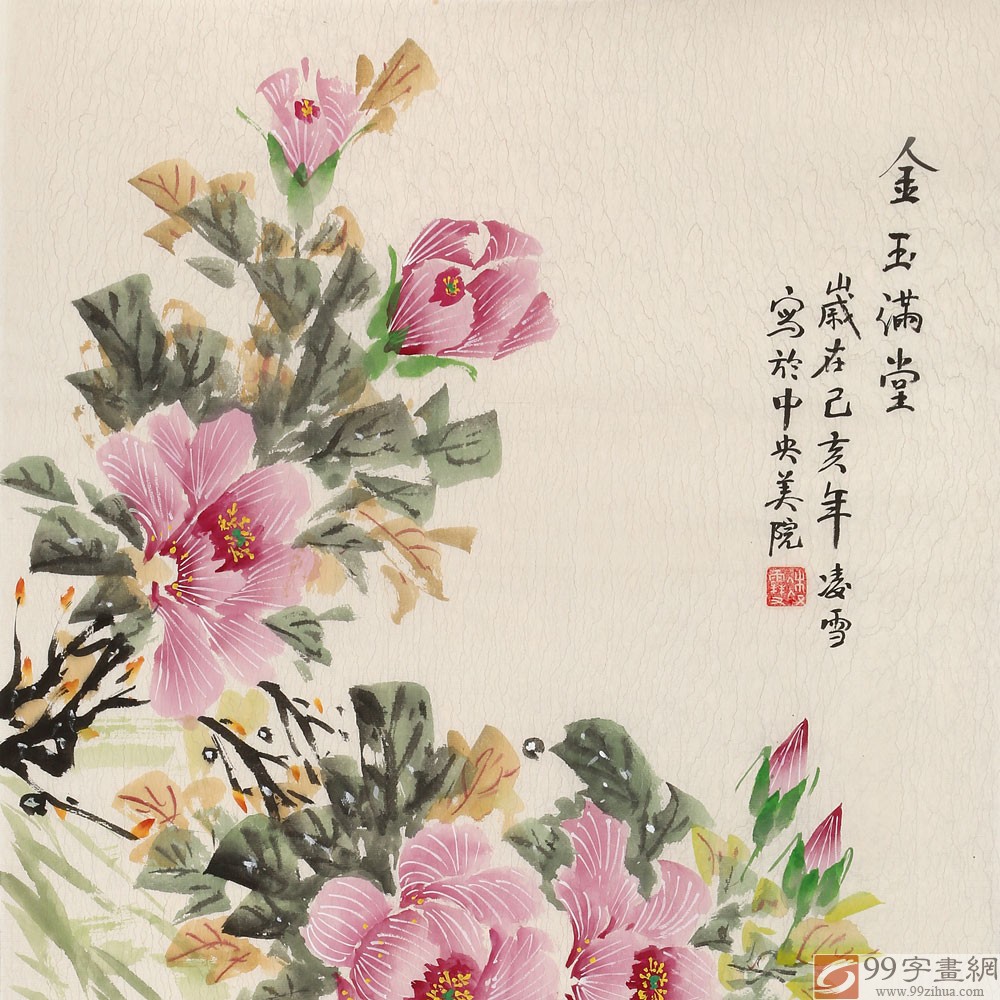 金玉滿堂
歲在己亥年凌雪
寫於中央美院
99字畫網
www.99zihua.com